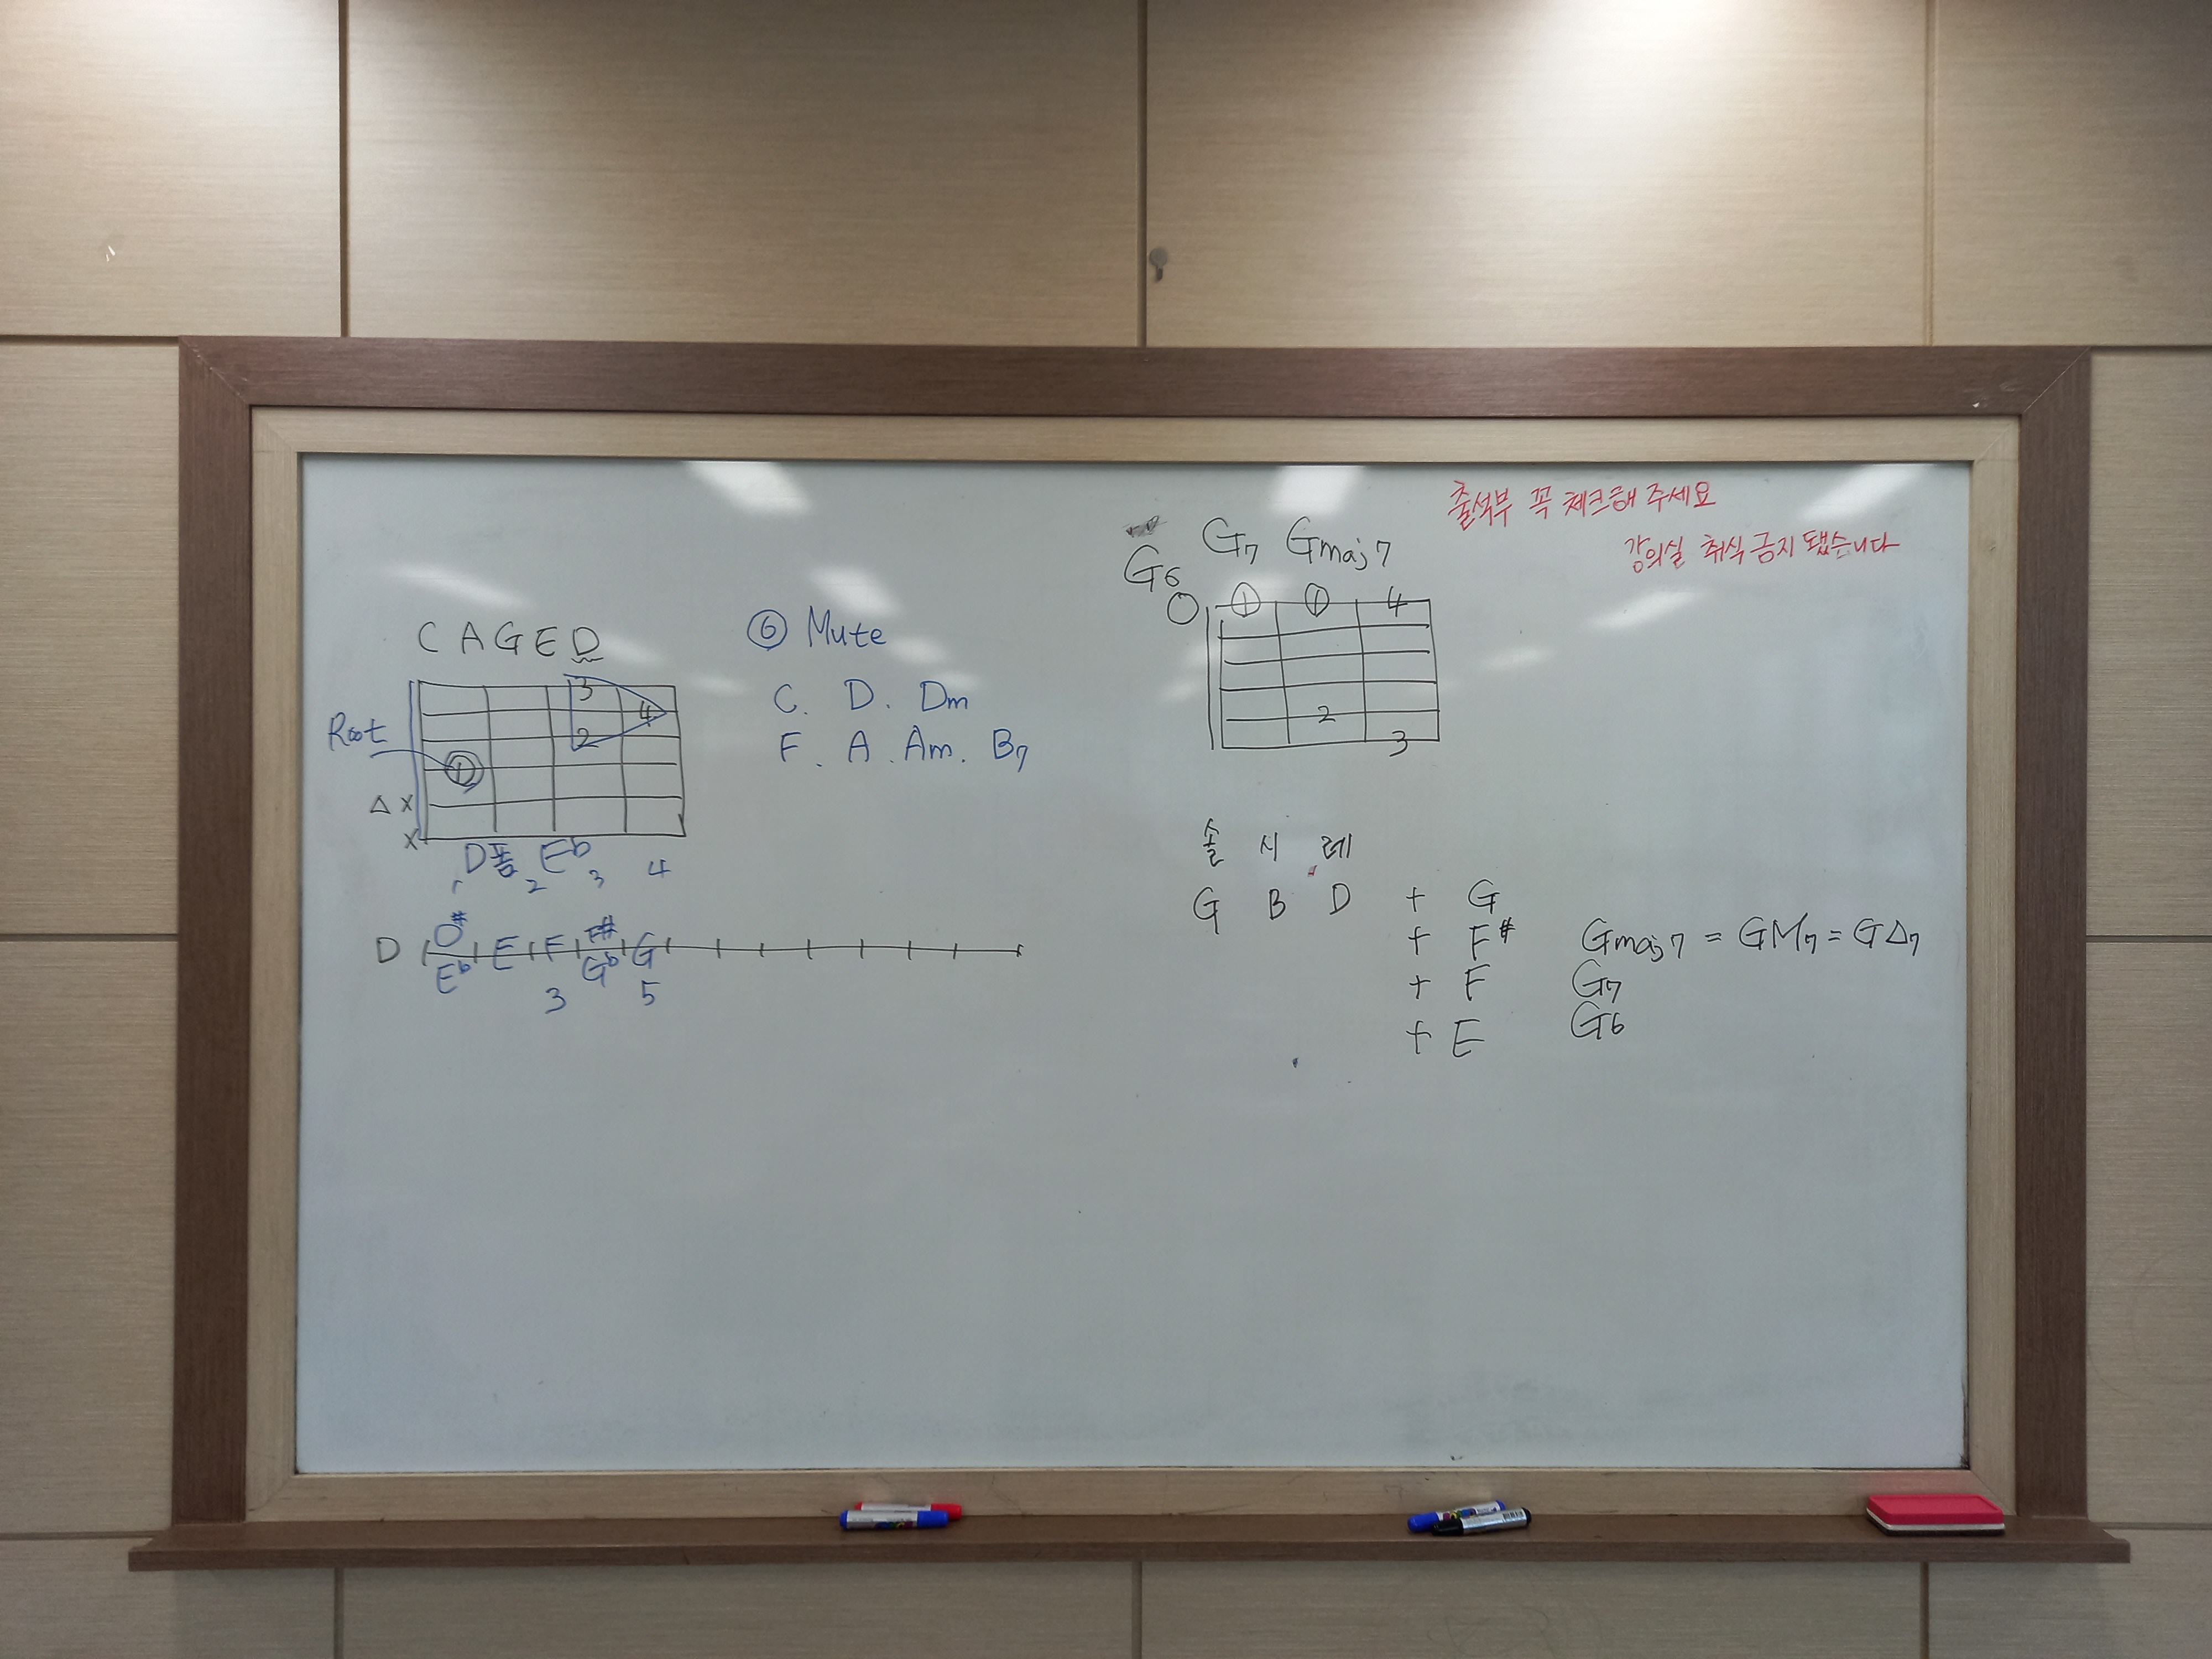 출석부 꼭 체크해 주세요
강의실 취식 금지 됐습니다
CAGED
3
4
2
Root
①
Δ X
X
D폼 Eb
1 2 3 4
D D# E F F# G
Eb Gb
3 5
⑥ Mute
C. D. Dm
F. A. Am. B7
G6 G7 Gmaj7
O ① ① 4
2
3
솔 시 레
G B D + G
+ F# Gmaj7 = GM7 = GΔ7
+ F G7
+ E G6